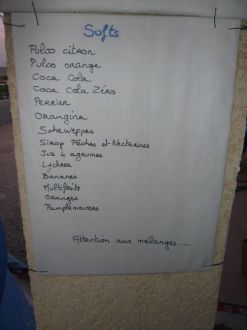 Softs
Pulco citron
Pulco orange
Coca Cola
Coca Cola Zéro
Perrier
Orangina
Schweppes
Sirop Pêches et Nectarines
Jus 4 agrumes
Lychees
Bananes
Multifruits
Oranges
Pamplemousses
Attention aux mélanges.....